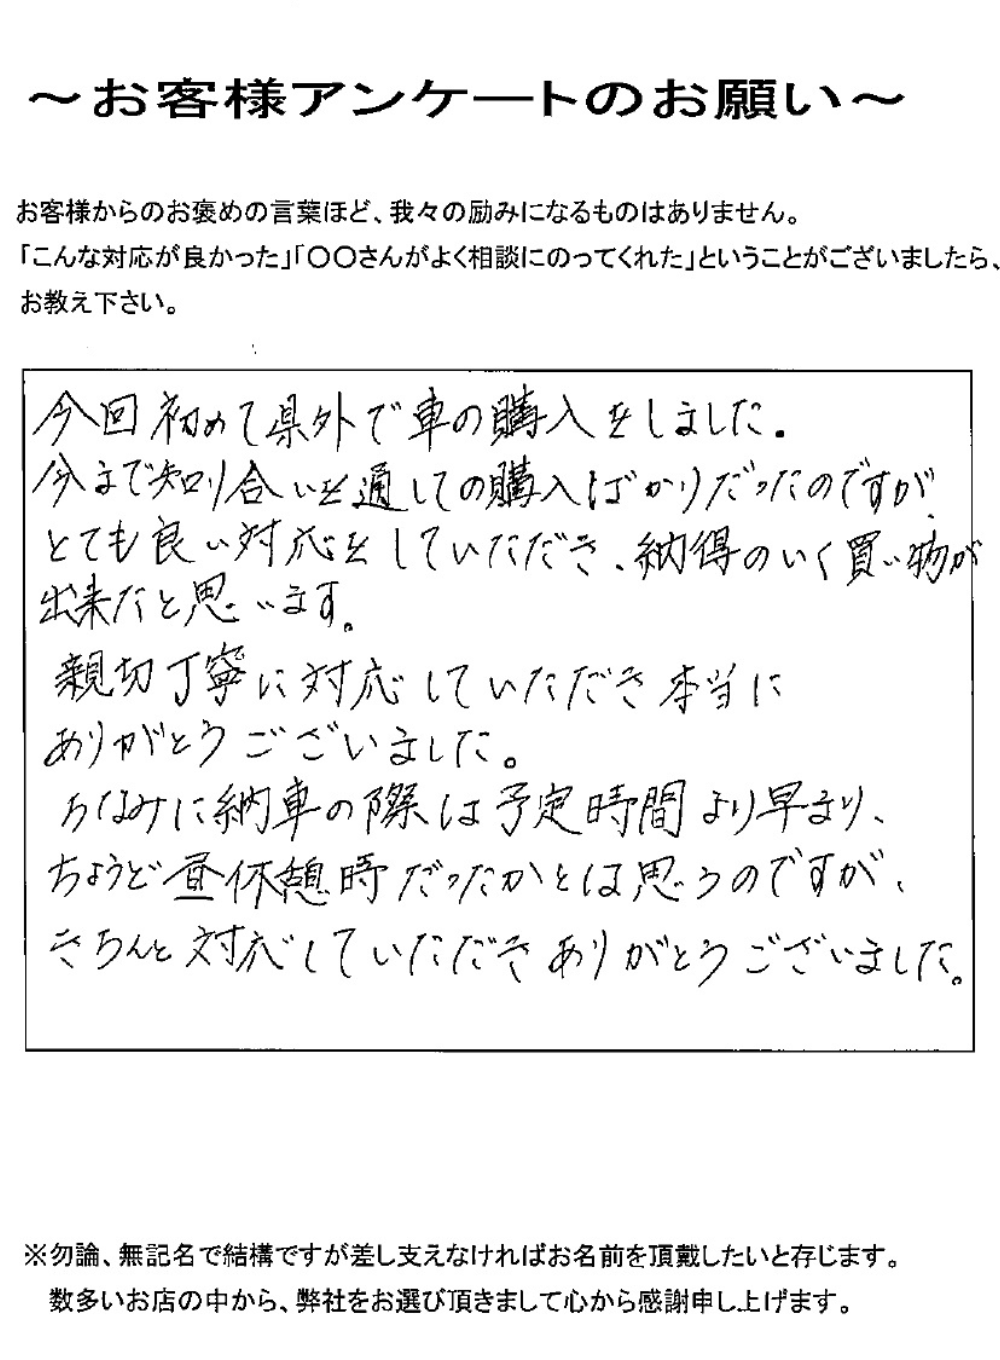 ～お客様アンケートのお願い～
お客様からのお褒めの言葉ほど、我々の励みになるものはありません。
「こんな対応が良かった」「〇〇さんがよく相談にのってくれた」ということがございましたら、
お教え下さい。
今回初めて県外で車の購入をしました。
今まで知り合いを通しての購入ばかりだったのですが、
とても良い対応をしていただき、納得のいく買い物が
出来たと思います。
親切丁寧に対応していただき本当に
ありがとうございました。
ちなみに納車の際は予定時間より早まり、
ちょうど昼休憩時だったかとは思うのですが、
きちんと対応していただきありがとうございました。
※勿論、無記名で結構ですが差し支えなければお名前を頂戴したいと存じます。
数多いお店の中から、弊社をお選び頂きまして心から感謝申し上げます。